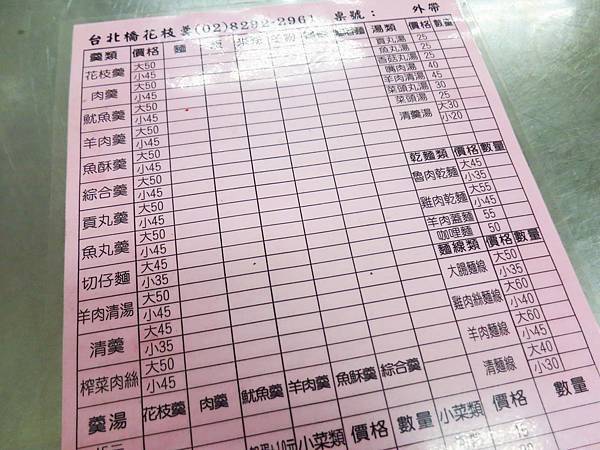 台北橋花枝羹(02)8292-2961 桌號： 外帶
羹類 價格 麵
花枝羹 大50 小45
肉羹 大50 小45
魷魚羹 大50 小45
羊肉羹 大50 小45
魚酥羹 大50 小45
綜合羹 大50 小45
貢丸羹 大50 小45
魚丸羹 大50 小45
切仔麵 大45 小35
羊肉清湯 大50 小45
清羹 大45 小35
榨菜肉絲 大50 小45
羹湯 花枝羹 肉羹 魷魚羹 羊肉羹 魚酥羹 綜合羹
湯類 價格 數量
貢丸湯 25
魚丸湯 25
香菇丸湯 25
嘴肉湯 40
羊肉清湯 45
菜頭丸湯 30
菜頭湯 25
清羹湯 大30 小20
乾麵類 價格 數量
魯肉乾麵 大45 小35
雞肉乾麵 大55 小45
羊肉蓋麵 55
咖哩麵 50
麵線類 價格 數量
大腸麵線 大50 小35
雞肉絲麵線 大50 小40
羊肉麵線 大60 小45
清麵線 大40 小30
小菜類 價格 數量 小菜類 價格 數量